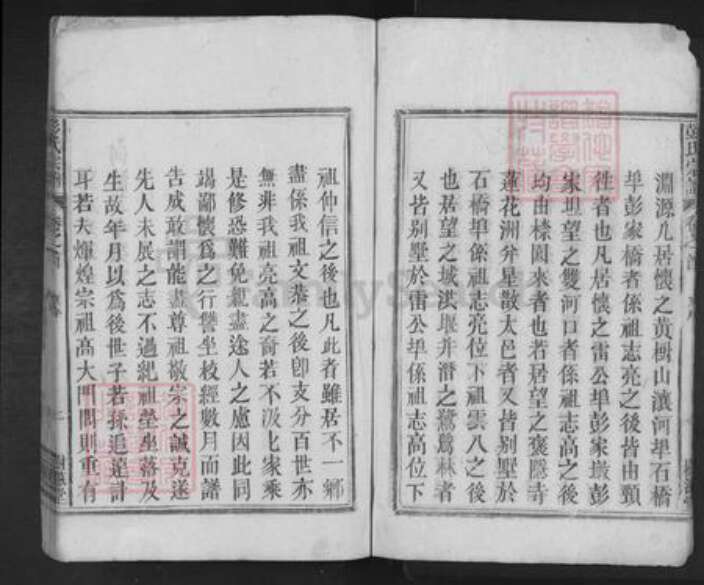 淵源凡居懷之黃樹山瀼河埠石橋
埠彭家橋者係祖志亮之後皆由顆
徃者也凡居懷之雷公埠彭家墩彭
家坦望之雙河口者係祖志高之後
均由棣園來者也若居望之褒隱寺
蓮花洲分星散大邑者又皆别墅於
石橋埠係祖志亮位下祖雲八之後
也居望之城洪堰井潛之鷺鷥林者
又皆别墅於雷公埠係祖志高位下
祖仲信之後也凡此者雖居不一鄉
盡係我祖文恭之後卽支分百世亦
無非我祖亮高之裔若不汲比家乘
是修恐難免親盡途人之慮因此同
竭鄙懷爲之行譬坐校經數月而譜
告成敢謂能盡尊祖敬宗之誠克遂
先人未展之志不過紀祖塋坐落及
生故年月以爲後世子若孫追遠計
耳若夫煇煌宗祖高大門閭則重有
彭氏宗譜